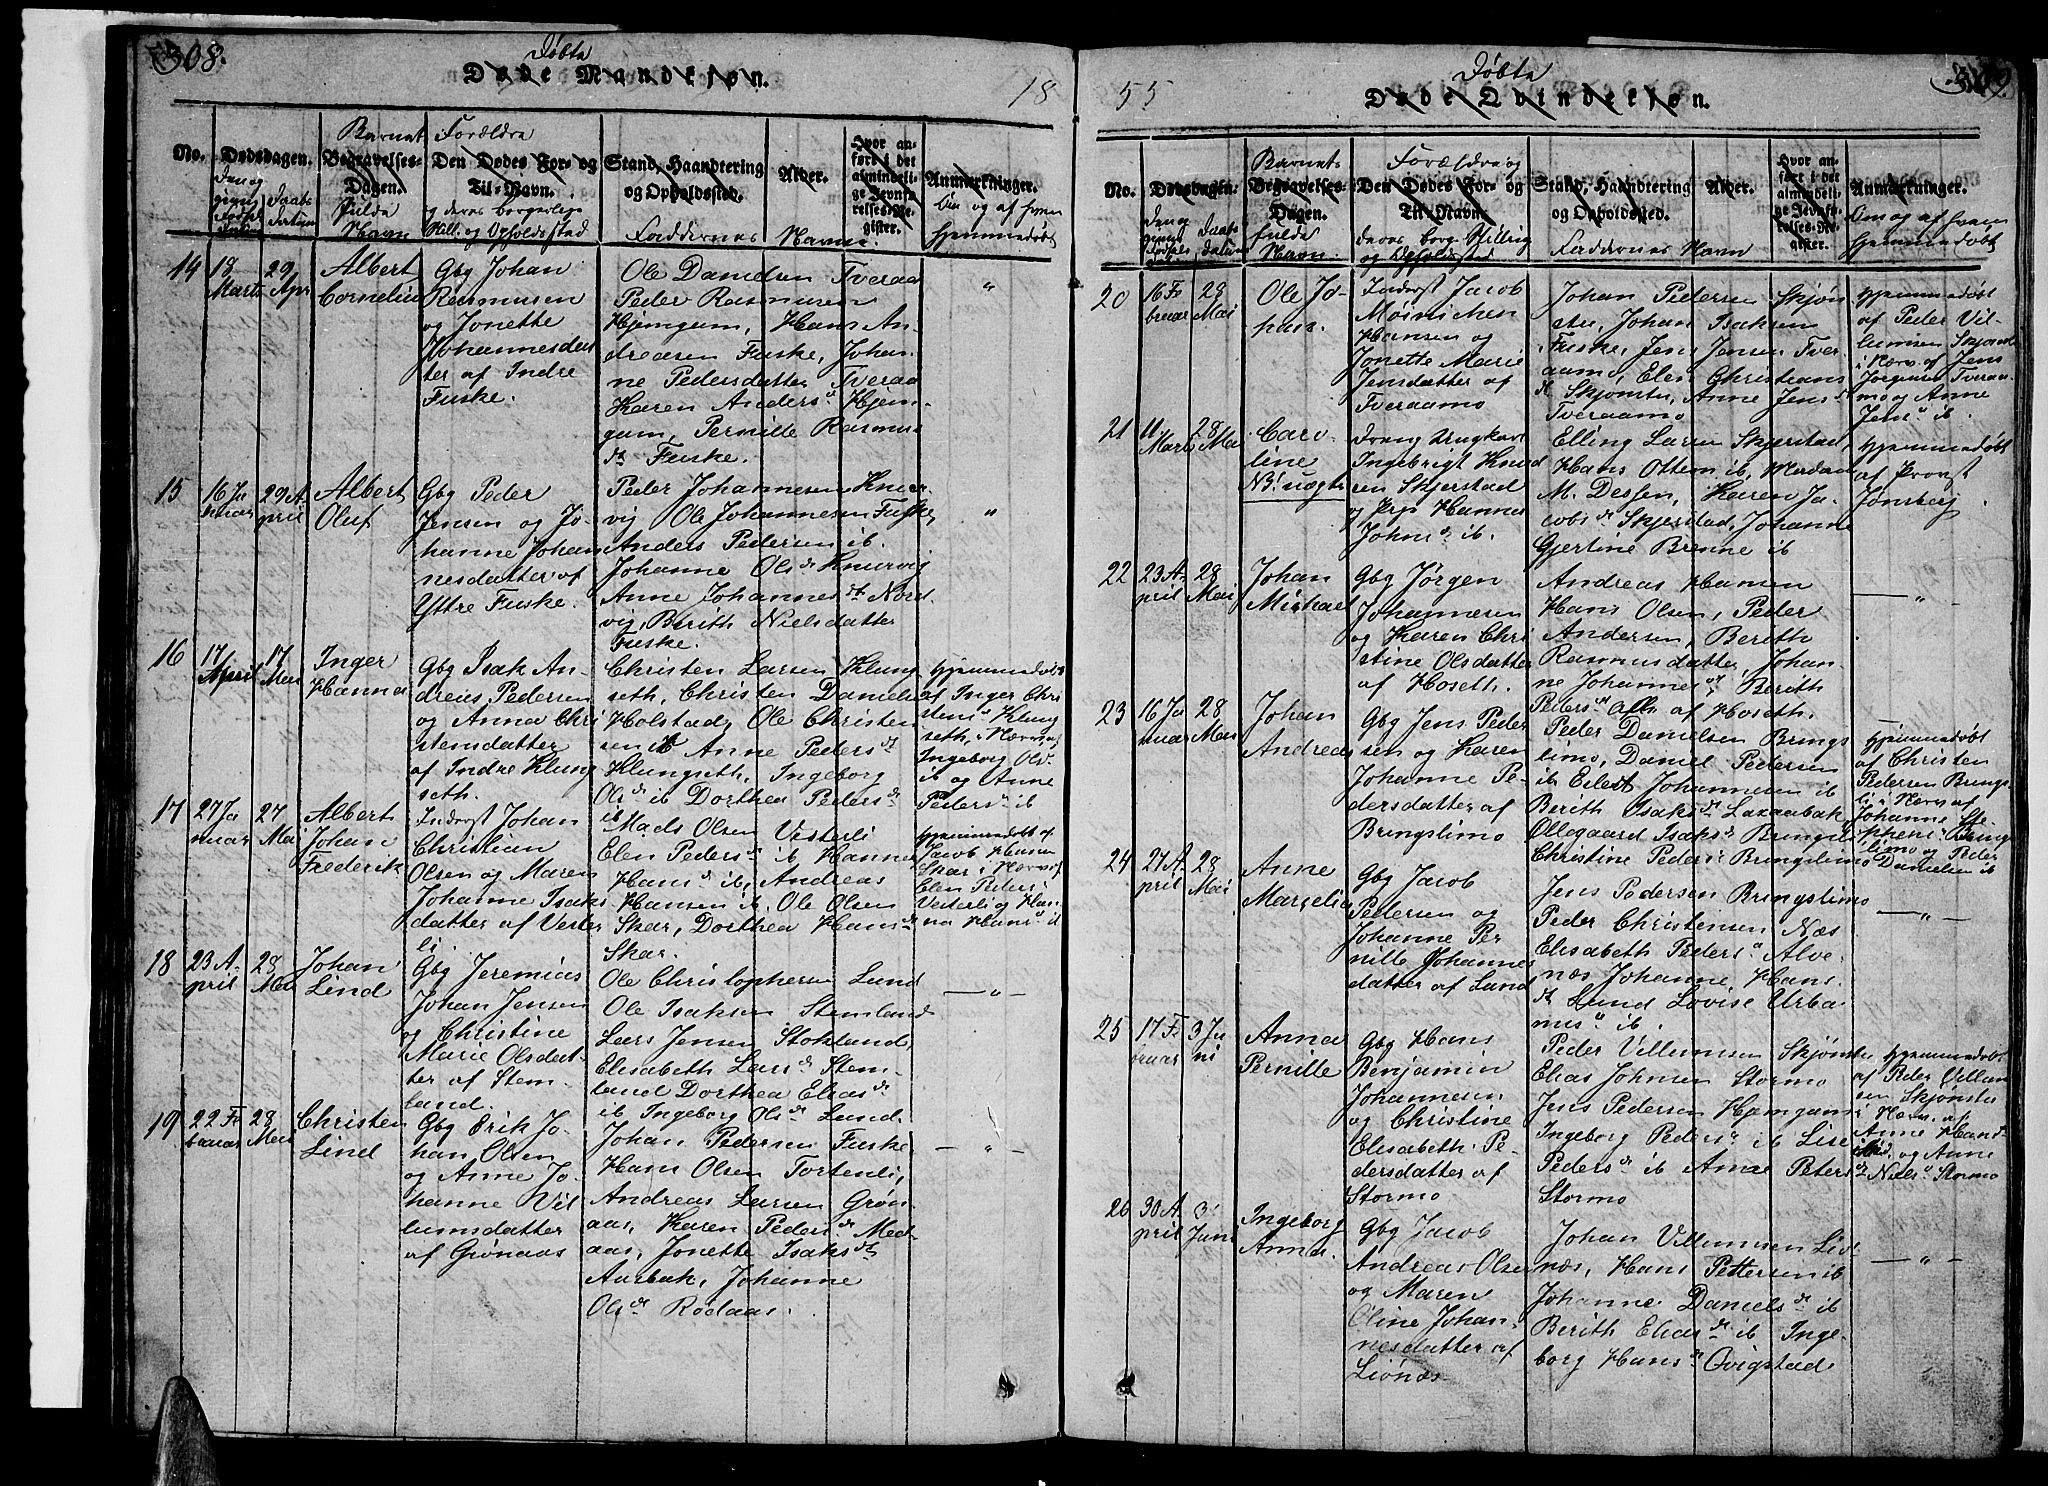 308.
Døbte
Døde Mandkjøn.
18
No.
Dødsdagen.
Barnet
Begravelses-
Dagen.
fulde
Navn
Forældre
Den Dødes For- og
Til-Navn.
og deres borgerlige
Still. og Opholdsted
Stand, Haandtering
og Opholdssted.
Faddernes
Alder.
Navne.
Hvor an-
ført i det
almindeli-
ge Jevnfø-
relses-Re-
gister.
Anmærkninger.
Om og af hvem
hjemmedøbt
14
18
Marts
29
Apr
Albert
Cornelius
Gbg Johan
Rasmusen
og Jonette
Johannesdat
ter af Indre
Fuske.
Ole Danielsen Tveraa
Peder Rasmusen
Hjemgam, Hans An-
dreasen Fuske, Johan
ne Pedersdatter Tveraa
Karen Anders dr Hjem-
gam, Pernille Rasmus
dr Fuske.
"
15
16 Ja
nuar
29 A
pril
Albert
Oluf
Gbg Peder
Jensen og Jo-
hanne Johan
nesdatter af
Yttre Fuske.
Peder Johannesen Knær-
vig Ole Johannesen Fuske,
Anders Pedersen ib.
Johanne Ols dr Knærvig
Anne Johannes dr Nord-
vig, Berith Nielsdatter
Fuske.
"
16
17
April
17
Mai
Inger
Hanna
Gbg Isak An-
dreas Pedersen
og Anna Chri
stensdatter
af Indre Klung
seth.
Christen Larsen Klung
seth, Christen Daniels
Holstad, Ole Christen
sen ib Anne Peders dr
Klungseth, Ingeborg
Ols dr ib Dorthea Peders dr
ib
Hjemmedøbt
af Inger Chri
stens dr Klung
seth, i Nærv. af
Ingeborg Ols dr
ib og Anne
Peders dr ib
17
27 Ja
nuar
27
Mai
Albert
Johan
Frederik
Inderst Johan
Christian
Olsen og Maren
Johanne Isaks
datter af Vester
li.
Mads Olsen Vesterli
Elen Peders dr ib Hanna
Hans dr ib, Andreas
Hansen ib. Ole Olsen
Skar, Dorthea Hans dr
Skar.
Hjemmedøbt af
Jacob Hansen
Skar i Nærv. af
Elen Peders dr
Vesterli og Han-
na Hans dr ib
18
23 A-
pril
28
Mai
Johan
Lind
Gbg Jeremias
Johan Jensen
og Christine
Marie Olsdat-
ter af Stem-
land.
Ole Christophersen Lund
Ole Isaksen Stemland
Lars Jensen Stokland,
Elisabeth Lars dr Stem-
land Dorthea Elias dr
ib Ingeborg Ols dr Lund.
"
19
22 Fe
bruar
28
Mai
Christen
Lind
Gbg Erik Jo-
han Olsen
og Anne Jo-
hanne Vil
lumsdatter
af Grønaas
Johan Pedersen Fuske,
Hans Olsen Tortenli,
Andreas Larsen Grøn-
aas, Karen Peders dr Med-
aas, Jonette Isaks dr
Aasbak, Johanne
Ols dr Rødaas.
"
309.
Døbte
Døde Qvindekjøn.
55
No.
Dødsdagen.
Barnets
Begravelses-
Dagen.
fulde
Navn.
Forældre og
Den Dødes For- og
Til-Navn.
deres borg. Stilling
og Opholdsted
Stand, Haandtering
og Opholdssted.
Faddernes
Alder.
Navn
Hvor an-
ført i det
almindeli-
ge Jevnfø-
relses-Re-
gister.
Anmærkninger.
Om og af hvem
hjemmedøbt
20
16 Fe
bruar
28
Mai
Ole Jo-
han.
Inderst Jacob
Møinichen
Hansen og
Jonette Marie
Jensdatter af
Tveraamo
Johan Pedersen Skjøn-
stu, Johan Isaksen
Fuske, Jens Jensen Tver-
aamo, Elen Christians
dr Skjønstu, Anne Jens dr
Tveraamo
Hjemmedøbt
af Peder Vil-
lumsen Skjønstu
i Nærv. af Jens
Jørgensen Tveraa-
mo og Anne
Jens dr ib.
21
11
Marts
28
Mai
Caro-
line
NB! uægte
Ingebrigt Knud
sen Skjerstad
og Pige Hanna
Johns dr ib.
Elling Larsen Skjerstad,
Hans Ottem ib, Madam
M. Dessen, Karen Ja-
cobs dr Skjerstad, Johanne
Gjertine Brenne ib
Hjemmedøbt
af Provst
Jonsberg
22
23 A-
pril
28
Mai
Johan
Mikael
Gbg Jørgen
Johannesen
og Karen Chri
stine Olsdatter
af Hoseth.
Andreas Hansen
Hans Olsen, Peder
Andersen, Berith
Rasmusdatter, Johan-
ne Johannes dr, Berith
Peders dr Alle af Hoseth.
"
23
16 Ja
nuar
28
Mai
Johan
Andreas
Gbg Jens Peder
sen og Karen
Johanne Pe-
dersdatter af
Bringslimo
Peder Danielsen Brings
limo, Daniel Pedersen
ib Eilert Johannesen ib
Berith Isaks dr Laxaabak
Ollegaard Isaks dr Bringsli
Christine Peders dr Bringslimo
Hjemmedøbt
af Christen
Pedersen Brings
li i Nærv af
Johanne Ste-
phens dr Brings
limo og Peder
Danielsen ib
24
27 A-
pril
28
Mai
Anne
Margelia
Gbg Jacob
Pedersen og
Johanne Per
nille Johannes
datter af Lund
Jens Pedersen Bringslimo
Peder Christensen Næs
Elisabeth Peders dr Alve-
næs Johanne Hans
dr Lund Lovise Urba-
nus dr ib.
"
25
17 Fe
bruar
3 Ju
ni
Anna
Pernille
Gbg Hans
Benjamin
Johannesen
og Christine
Elisabeth Pe-
dersdatter af
Stormo
Peder Villumsen Skjønstu
Elias Johnsen Stormo
Jens Pedersen Hjemgam
Ingeborg Peders dr ib Lise
Peders dr ib Anne Peters dr
Stormo
Hjemmedøbt
af Peder Villum
sen Skjønstu
i Nærv. af
Anne Hans dr
og Anne
Niels dr Stormo
26
30 A
pril
3
Juni
Ingeborg
Anna.
Gbg Jacob
Andreas Olsen
og Maren
Oline Johan-
nesdatter af
Liønæs
Johan Villumsen Liø-
næs, Hans Pettersen ib
Johanne Daniels dr ib
Berith Elias dr ib Inge-
borg Hans dr Qvigstad
"